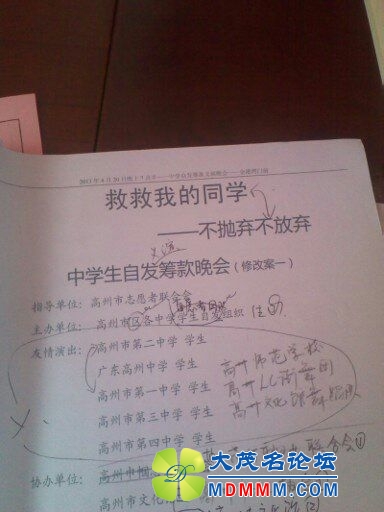 2011年6月20日晚上7点半——中学生自发筹款义演晚会——金港湾门前
救救我的同学
——不抛弃不放弃
义演
中学生自发筹款晚会(修改案一)
指导单位：高州市志愿者联合会
主办单位：高州市区各中学学生自发组织
友情演出：高州市第二中学 学生
广东高州中学 学生
高州市第一中学 学生
高州市第三中学 学生
高州市第四中学 学生
高州师范学校
高州
高州文化
协办单位：高州市巾帼
高州市文化
大茂名论坛
MDMMM.COM